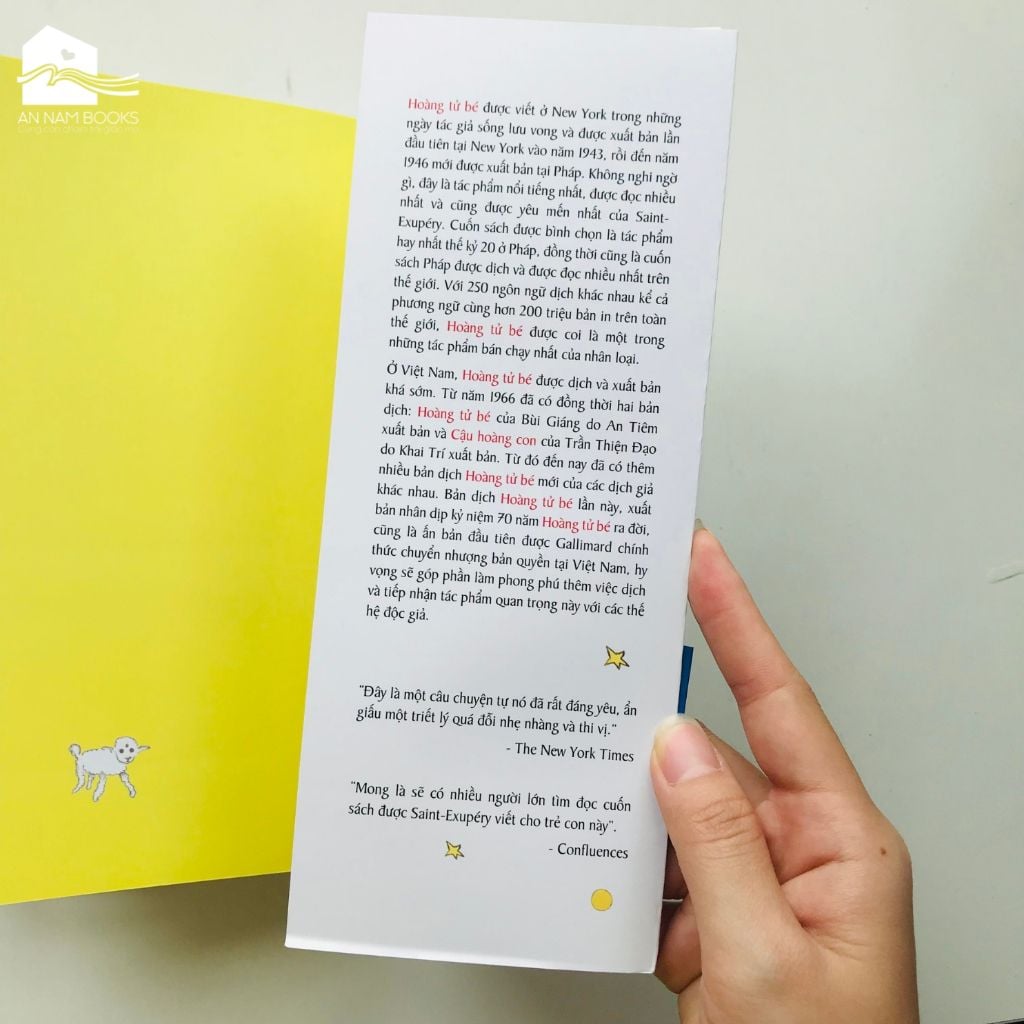 AN NAM BOOKS
Hoàng tử bé được viết ở New York trong những
ngày tác giả sống lưu vong và được xuất bản lần
đầu tiên tại New York vào năm 1943, rồi đến năm
1946 mới được xuất bản tại Pháp. Không nghi ngờ
gì, đây là tác phẩm nổi tiếng nhất, được đọc nhiều
nhất và cũng được yêu mến nhất của Saint-
Exupéry. Cuốn sách được bình chọn là tác phẩm
hay nhất thế kỷ 20 ở Pháp, đồng thời cũng là cuốn
sách Pháp được dịch và được đọc nhiều nhất trên
thế giới. Với 250 ngôn ngữ dịch khác nhau kể cả
phương ngữ cùng hơn 200 triệu bản in trên toàn
thế giới, Hoàng tử bé được coi là một trong
những tác phẩm bán chạy nhất của nhân loại.
Ở Việt Nam, Hoàng tử bé được dịch và xuất bản
khá sớm. Từ năm 1966 đã có đồng thời hai bản
dịch: Hoàng tử bé của Bùi Giáng do An Tiêm
xuất bản và Cậu hoàng con của Trần Thiện Đạo
do Khai Trí xuất bản. Từ đó đến nay đã có thêm
nhiều bản dịch Hoàng tử bé mới của các dịch giả
khác nhau. Bản dịch Hoàng tử bé lần này, xuất
bản nhân dịp kỷ niệm 70 năm Hoàng tử bé ra đời,
cũng là ấn bản đầu tiên được Gallimard chính
thức chuyển nhượng bản quyền tại Việt Nam, hy
vọng sẽ góp phần làm phong phú thêm việc dịch
và tiếp nhận tác phẩm quan trọng này với các thế
hệ độc giả.
"Đây là một câu chuyện tự nó đã rất đáng yêu, ẩn
giấu một triết lý quá đỗi nhẹ nhàng và thi vị."
- The New York Times
"Mong là sẽ có nhiều người lớn tìm đọc cuốn
sách được Saint-Exupéry viết cho trẻ con này".
- Confluences